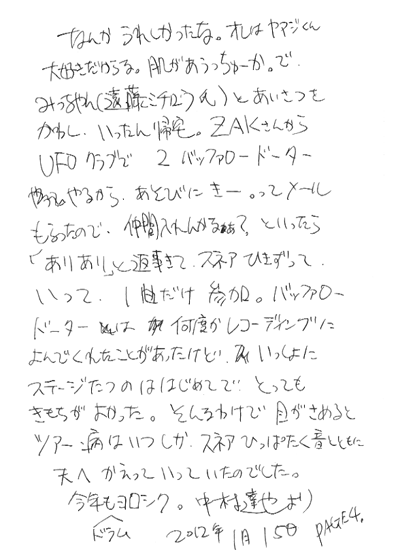 なんか うれしかったな。オレは ヤマジくん
大好きだからな。肌があうっちゅーか。で、
みっちゃん(遠藤ミチロウ氏)とあいさつを
かわし、いったん帰宅。ZAKさんから
UFOクラブで 2 バッファロードーター
やるから、あそびにきー。ってメール
もらったので、仲間入れんかなぁ?、といったら
「ありあり」と返事きて、スネア ひきずって、
いって、1曲だけ 参加。バッファロー
ドーター は 何度か レコーディングに
よんでくれたことがあったけど、いっしょに
ステージたつのは はじめてで とっても
きもちが よかった。そんなわけで 目がさめると
ツアー病は いつしか、スネア ひっぱたく音とともに
天へ かえって いっていたのでした。
今年もヨロシク。中村達也 より
ドラム 2012年1月15日 PAGE4.